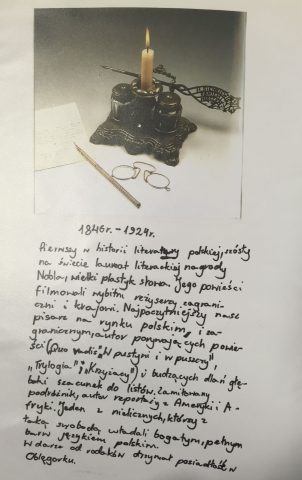 1846r. - 1924r.
Pierwszy w historii literatury polskiej, szósty
na świecie laureat literackiej nagrody
Nobla, wielki plastyk słowa. Jego powieści
filmowali wybitni reżyserzy zagrani-
czni i krajowi. Najpoczytniejszy nasz
pisarz na rynku polskim i za-
granicznym, autor porywających powie-
ści („Quo vadis" „W pustyni i w puszczy",
„Trylogia" „Krzyżacy") i budzących dlań głę-
boki szacunek do listów, zamiłowany
podróżnik, autor reportaży z Ameryki i A-
fryki. Jeden z nielicznych, którzy z
taką swobodą władali bogatym, pełnym
barw językiem polskim.
W darze od rodaków otrzymał posiadłość w
Oblęgorku.